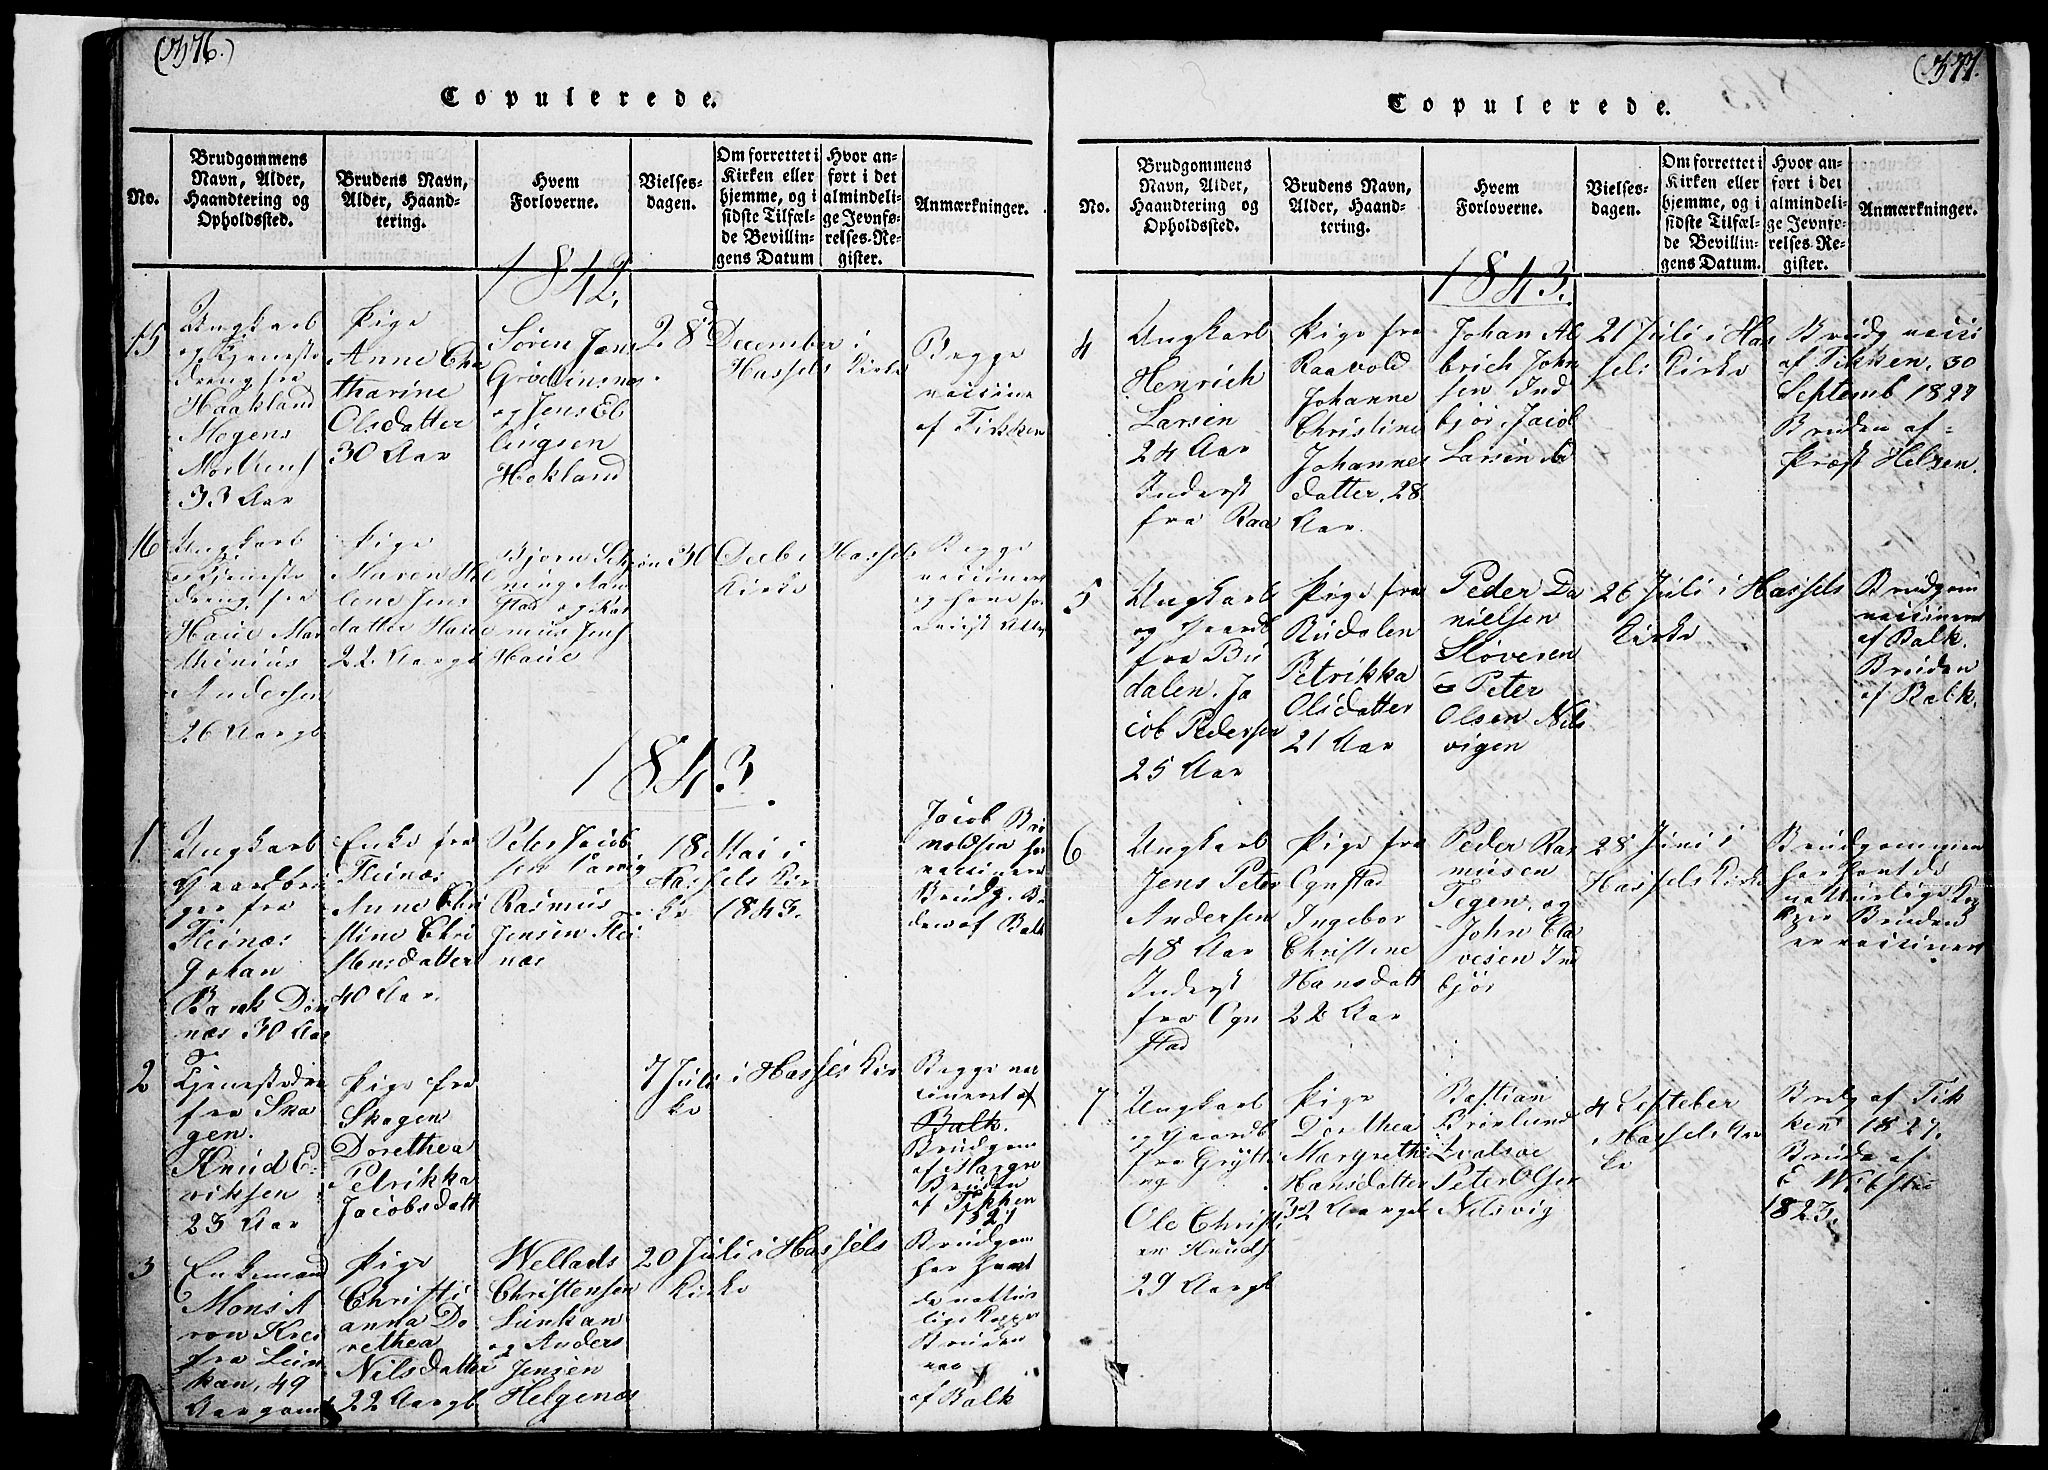 (376.)
Copulerede.
No.
Brudgommens
Navn, Alder,
Haandtering og
Opholdssted.
Brudens Navn,
Alder, Haand-
tering.
Hvem
Forloverne.
Vielses-
dagen.
Om forrettet i
Kirken eller
hjemme, og i
sidste Tilfæl-
de Bevillin-
gens Datum
Hvor an-
ført i det
almindeli-
ge Jevnfø-
relses-Re-
gister.
Anmærkninger.
1842.
15
Ungkarl
og Tjeneste
dreng fra
Haakland
Mogens
33 Aar
Pige
Anne Cha
tharine
Olsdatter
30 Aar
Søren Jons
og Jens El
lingsen
Hokland
28 December i
Hassels Kirke
Begge
vaccine
af Fikken
16
Ungkarl
og Tjeneste
dreng fra
Haue Mar
thinius
Andersen
26 Aargl
Pige
Maren He
lene Jens
datter Haue
22 Aargl
Bjørn Schrøn
ning
stad og Ras
mus Jens
Haue
30 Decbr Hassels
Kirke
Begge
vaccineret
1843.
1
Ungkarl
Gaardbru
ger fra
Fleinæs
Johan
Barek Don
næs 30 Aar
Enke fra
Fleinæs
Anne Chri
stine Chri
stensdatter
40 Aar.
Peter Jacob
sen
Rasmus
Jensen Flei
næs
18 Mai i
Hassels Kir
ke 1843.
Jacob Ber
noldsen har
vaccineret
Brudg. Bru
den af Balk
2
Tjenestedre
fra Ska
gen.
Knud E-
riksen
23 Aar
Pige fra
Skagen
Dorethea
Petrikka
Jacobsdatt
7 Juli i Hassels Kir
ke
Begge vac
cineret af
Balk.
Brudgom
af Margre
Bruden
af Fikken
1821
3
Enkemand
Mons A
ron
fra Lun
kan, 49
Aar gaml
Pige
Christi
anna Do
rethea
Nilsdatter
22 Aargl
Wellads
Christensen
Lunkan
og Anders
Jensen
Helgenæs
20 Juli i Hassels
Kirke
Brudgom
har havt
de natur
lige Kopper
Bruden
vac
af Balk
(377.
Copulerede.
No.
Brudgommens
Navn, Alder,
Haandtering og
Opholdssted.
Brudens Navn,
Alder, Haand-
tering.
Hvem
Forloverne.
Vielses-
dagen.
Om forrettet i
Kirken eller
hjemme, og i
sidste Tilfæl-
de Bevillin-
gens Datum.
Hvor an-
ført i det
almindeli-
ge Jevnfø-
relses-Re-
gister.
Anmærkninger.
1843.
4
Ungkarl
Henrich
Larsen
24 Aar
Inderst
fra Raa
Pige fra
Raavold
Johanne
Christine
Johannes
datter, 28
Aar
Johan Al
brich John
sen Ind
bjør, Jacob
Larsen
21 Juli i Has
sels Kirke
Brudg vacci
af Fikken. 30
Septemb 1827
Bruden af
Præst Helzen.
5
Ungkarl
og Gaardb
fra Bu
dalen. Ja
cob Pedersen
25 Aar
Pige fra
Budalen
Petrikka
Olsdatter
21 Aar
Peder Da
nielsen
Sløveren
Peter
Olsen Nils
vigen
26 Juli i Hassels
Kirke
Brudgom
vaccineret
af Balk.
Bruden
af Balk.
6
Ungkarl
Jens Peter
Andersen
48 Aar
Inderst
fra Ogn
stad
Pige fra
Ognstad
Ingebor
Christine
Hansdatt
22 Aar
Peder Ras
musen
Tegen, og
John Cla
vesen Ind
bjør
28 Juni i
Hassels Kirke
Brudgommen
har havt de
naturlige Kop
per Bruden
er vaccineret
7
Ungkarl
og Gaardb
fra Grytti
ng
Ole Christi
an Knuds
29 Aargl
Pige
Dorthea
Margrethe
Hansdatter
32 Aargl
Bastian
Peter Olsen
Nilsvig
4 Septeber
i Hassels Kir
ke
Brudg af Fik
ken 1827.
Bruden af
1823.